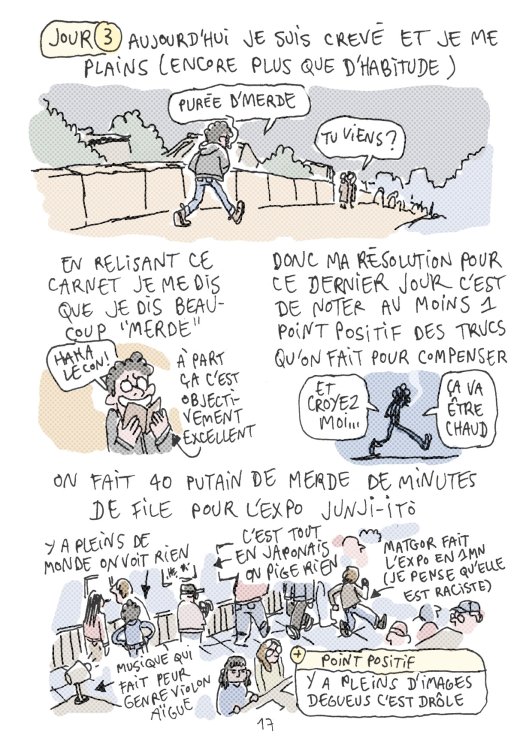 JOUR 3 AUJOURD'HUI JE SUIS CREVÉ ET JE ME
PLAINS (ENCORE PLUS QUE D'HABITUDE)
PURÉE D'MERDE
TU VIENS?
EN RELISANT CE
CARNET JE ME DIS
QUE JE DIS BEAU-
COUP "MERDE"
HAHA
LE CON!
À PART
ÇA C'EST
OBJECTI-
VEMENT
EXCELLENT
DONC MA RÉSOLUTION POUR
CE DERNIER JOUR C'EST
DE NOTER AU MOINS 1
POINT POSITIF DES TRUCS
QU'ON FAIT POUR COMPENSER
ET
CROYEZ
MOI...
ÇA VA
ÊTRE
CHAUD
ON FAIT 40 PUTAIN DE MERDE DE MINUTES
DE FILE POUR L'EXPO JUNJI-ITÔ
Y A PLEINS DE
MONDE ON VOIT RIEN
C'EST TOUT
EN JAPONAIS
ON PIGE RIEN
MATGOR FAIT
L'EXPO EN 1MN
(JE PENSE QU'ELLE
EST RACISTE)
MUSIQUE QUI
FAIT PEUR
GENRE VIOLON
AÏGUE
+ POINT POSITIF
Y A PLEINS D'IMAGES
DEGUEUS C'EST DRÔLE
17